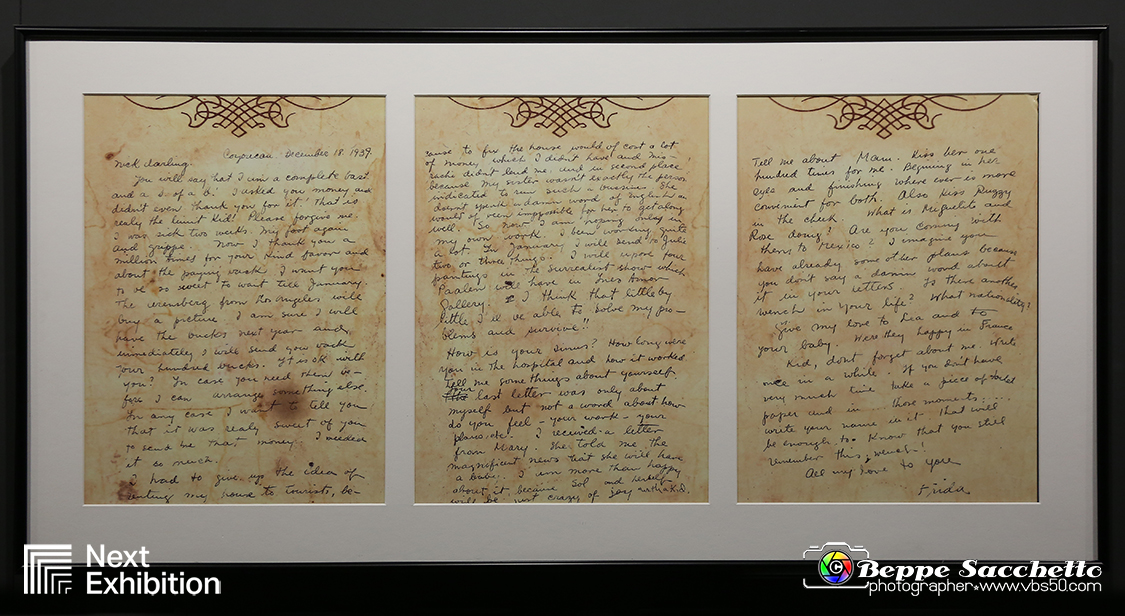 Nick darling.
Coyoacan December 18. 1939.
You will say that I am a complete bast
and a s. of a b! I asked you money and
didn't even thank you for it. That is
realy the limit Kid! Please forgive me.
I was sick two weeks. My foot again
and grippe. Now I thank you a
million times for your kind favor and
about the paying back I want you
to be so sweet to wait till January.
The Arensberg from Los Angeles will
buy a picture. I am sure I will
have the bucks next year and,
immediately I will send you back
your hundred bucks. It is ok with
you? In case you need them be-
fore I can arrange something else.
In any case I want to tell you
that it was realy sweet of you
to send me that money. I needed
it so much.
I had to give up the idea of
renting my house to tourists, be-
cause to fix the house would of cost a lot
of money which I didn't have and Mis-
rachi didn't lend me, and in second place
because my sister wasnt exactly the person
indicated to run such a bussines. She
doesnt speak a damn word of English an
would of been impossible for her to get along
well. So now I am hoping only in
my own work. I been working quite
a lot. In January I will send to Julie
two or three things. I will expose four
paintings in the surrealist show which
Paalen will have in Ines Amor
Gallery. I think that little by
little I'll be able to solve my pro-
blems and survive!!
How is your sinus? How long were
you in the hospital and how it worked
Tell me some things about yourself.
Your last letter was only about
myself but not a word about how
do you feel – your work – your
plans. etc. I received a letter
from Mary. She told me the
magnificent news that she will have
a babie. I am more than happy
about it, because Sol and herself
will be just crazy of joy with a Kid.
Tell me about Mam. Kiss her one
hundred times for me. Beginning in her
eyes and finishing where ever is more
convenient for both. Also kiss Ruzzy
in the cheek. What is Miguelito and
Rose doing? Are you coming with
them to Mexico? I imagine you
have already some other plans because
you don't say a damn word about
it in your letters. Is there another
wench in your life? What nationality?
Give my love to Lea and to
your baby. Were they happy in France
Kid, dont forget about me. Write
once in a while. If you don't have
very much time take a piece of toilet
paper and in .... those moments.....
write your name in it. That will
be enough to Know that you still
remember this wench!
All my love to you
Frida.
Next
Exhibition
Beppe Sacchetto
photographer★www.vbs50.com